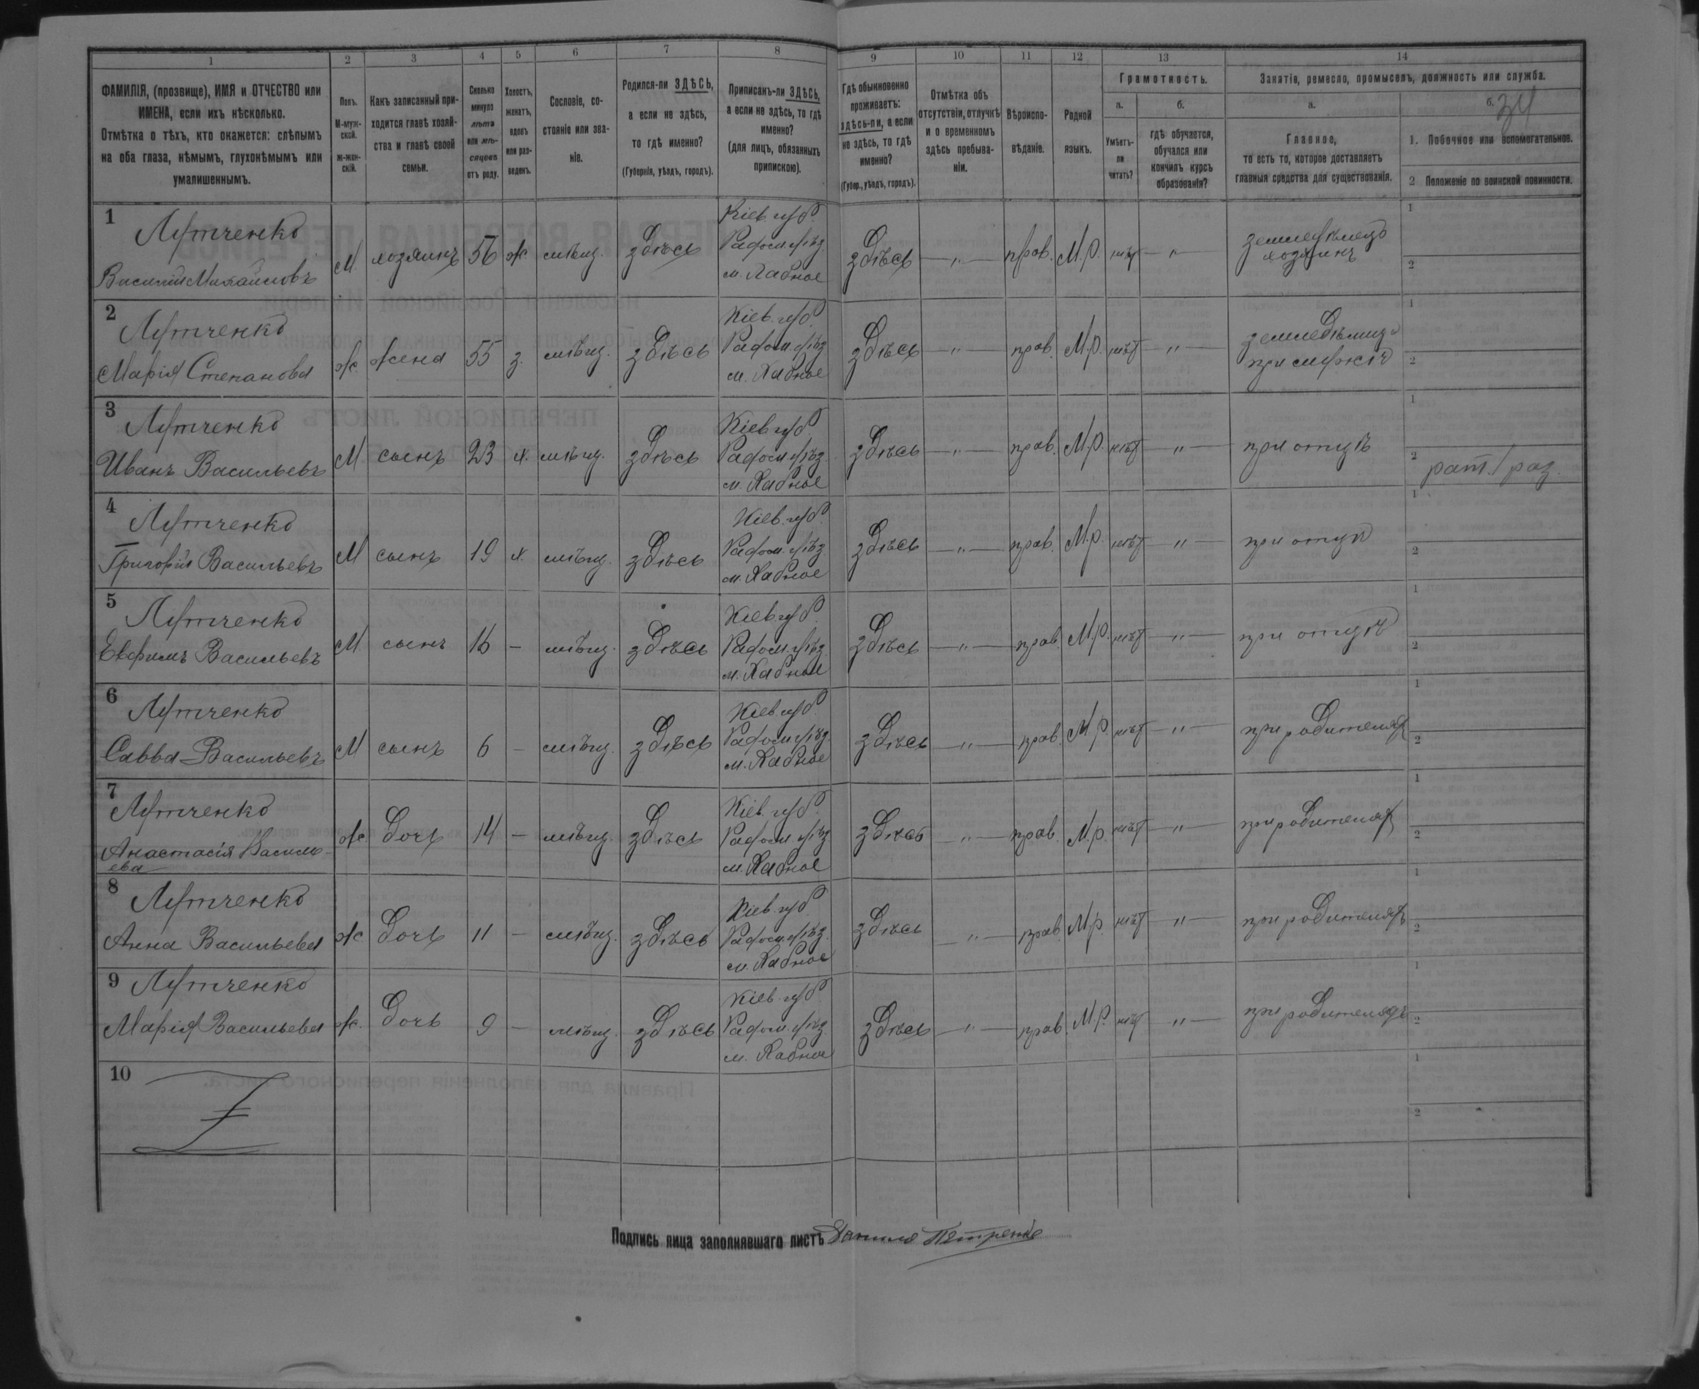 1 2 3 4 5 6 7 8 9 10 11 12 13 14
ФАМИЛІЯ, (прозвище), ИМЯ и ОТЧЕСТВО или
ИМЕНА, если ихъ нѣсколько.
Отмѣтка о тѣхъ, кто окажется: слѣпымъ
на оба глаза, нѣмымъ, глухонѣмымъ или
умалишеннымъ.
Полъ.
М-муж-
ской.
ж-жен-
скій.
Какъ записанный при-
ходится главѣ хозяй-
ства и главѣ своей
семьи.
Сколько
минуло
лѣтъ
или мѣ-
сяцевъ
отъ роду.
Холостъ,
женатъ,
вдовъ
или раз-
веденъ.
Сословіе, со-
стояніе или зва-
ніе.
Родился-ли ЗДѢСЬ,
а если не здѣсь,
то гдѣ именно?
(Губернія, уѣздъ, городъ).
Приписанъ-ли ЗДѢСЬ,
а если не здѣсь, то гдѣ
именно?
(для лицъ, обязанныхъ
припискою).
Гдѣ обыкновенно
проживаетъ:
здѣсь-ли, а если
не здѣсь, то гдѣ
именно?
(Губер., уѣздъ, городъ).
Отмѣтка объ
отсутствіи, отлучкѣ
и о временномъ
здѣсь пребыва-
ніи.
Вѣроиспо-
вѣданіе.
Родной
языкъ.
Грамотность.
а.
Умѣетъ-
ли
читать?
б.
гдѣ обучается,
обучался или
кончилъ курсъ
образованія?
Занятіе, ремесло, промыселъ, должность или служба.
а.
Главное,
то есть то, которое доставляетъ
главныя средства для существованія.
34
1. Побочное или вспомогательное.
2 Положеніе по воинской повинности.
1 Лутченко
Василій Михайловъ
М хозяинъ 56 ж мѣщ. здѣсь
Кіев. губ.
Радом. уѣзд
м. Хабное
здѣсь — „ — прав. М.р. нѣт „ —
земледѣлецъ
хозяинъ
1
2
2 Лутченко
Марія Степанова
ж жена 55 з. мѣщ. здѣсь
Кіев. губ.
Радом. уѣзд
м. Хабное
здѣсь — „ — прав. М.р. нѣт — „ —
при мужѣ
1
2
3 Лутченко
Иванъ Васильевъ
М сынъ 23 х. мѣщ. здѣсь
Кіев. губ.
Радом. уѣзд
м. Хабное
здѣсь — „ — прав. М.р. нѣт — „ — при отцѣ
1
2 рат. 1 раз.
4 Лутченко
Григорій Васильевъ
М сынъ 19 х. мѣщ. здѣсь
Кіев. губ.
Радом. уѣзд
м. Хабное
здѣсь — „ — прав. М.р. нѣт — „ — при отцѣ
1
2
5 Лутченко
Евфимъ Васильевъ
М сынъ 16 — мѣщ. здѣсь
Кіев. губ.
Радом. уѣзд
м. Хабное
здѣсь — „ — прав М.р. нѣт — „ — при отцѣ
1
2
6 Лутченко
Савва Васильевъ
М сынъ 6 — мѣщ. здѣсь
Кіев. губ.
Радом. уѣзд
м. Хабное
здѣсь — „ — прав М.р нѣт — „ — при родителях
1
2
7 Лутченко
Анастасія Василь-
ева
ж. дочь 14 — мѣщ. здѣсь
Кіев. губ.
Радом. уѣзд
м. Хабное
здѣсь — „ — прав М.р. нѣт — „ — при родителях
1
2
8 Лутченко
Анна Васильева
ж дочь 11 — мѣщ. здѣсь
Кіев. губ.
Радом. уѣзд
м. Хабное
здѣсь — „ — прав М.р. нѣт — „ — при родителяхъ
1
2
9 Лутченко
Марія Васильева
ж. дочь 9 — мѣщ. здѣсь
Кіев. губ.
Радом. уѣзд
м. Хабное
здѣсь — „ — прав М.р. нѣт — „ — при родителяхъ
1
2
10
1
2
Подпись лица заполнявшаго листъ Данило Петренко